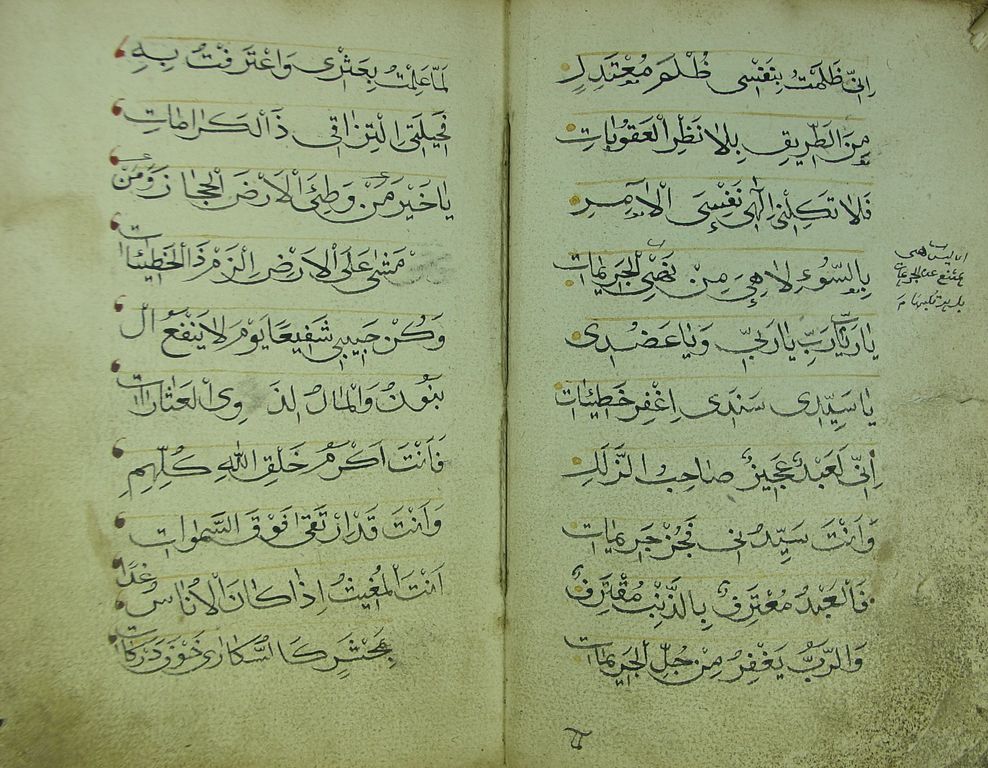 اِنّى ظَلَمْتُ بِنَفْسِى ظُلْمَ مُعْتَدِلٍ
مِنَ الطَّرِيقِ بِلَا نَظْرِ الْعَقُوبَاتِ
فَلَا تَكِلْنِى اِلٰهِى نَفْسِىَ الْاَمِرِ
بِالسُّوءِ لَا هِىَ مِنْ نَهْىِ الْجَرِيمَاتِ
يَا رَبِّ يَا رَبِّ يَا رَبِّى وَيَا عَضُدِى
يَا سَيِّدِى سَنَدِى اِغْفِرْ خَطِيئَاتِ
اِنّى لَعَبْدٌ عَجِيزٌ صَاحِبُ الزَّلَلِ
وَاَنْتَ سَيِّدُنِى فَجُزْ جَرِيمَاتِ
فَالْعَبْدُ مُعْتَرِفٌ بِالذَّنْبِ مُقْتَرِفٌ
وَالرَّبُّ يَغْفِرُ مِنْ جُلِّ الْجَرِيمَاتِ
اى ليس هى
عن الجرمات
لَمَّا عَلِمْتُ بِعَثْرِى وَاعْتَرَفْتُ بِهِ
فَحِيلَتِى الْتِزَاقِى ذَا الْكَرَامَاتِ
يَا خَيْرَ مَنْ وَطِئَ الْاَرْضَ الْحِجَازَ وَمَنْ
مَشٰى عَلَى الْاَرْضِ الْزَمْ ذَا الْخَطِيئَاتِ
وَكُنْ حَبِيبِى شَفِيعًا يَوْمَ لَا يَنْفَعُ ال
بَنُونُ وَالْمَالُ لِذَوِى الْعَثَارَاتِ
فَاَنْتَ اَكْرَمُ خَلْقِ اللّٰهِ كُلِّهِمِ
وَاَنْتَ قَدِ ارْتَقٰى فَوْقَ السَّمٰوَاتِ
اَنْتَ الْمُغِيثُ اِذَا كَانَ الْاُنَاسُ غَدًا
بِمَحْشَرٍ كَالسُّكَارٰى خَوْفَ دَرَكَاتِ